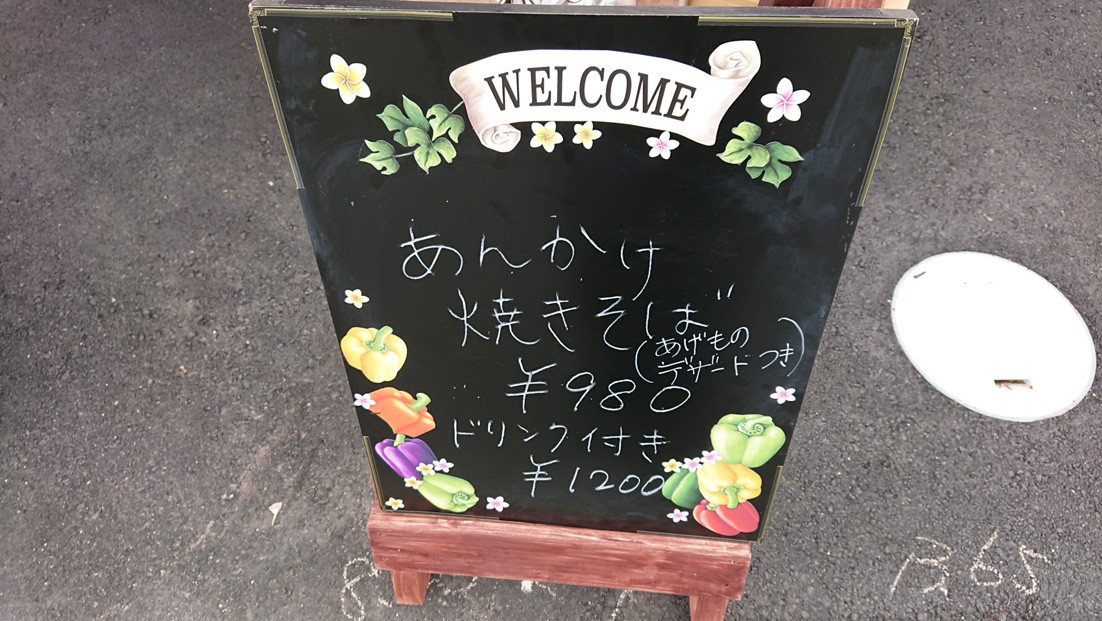 WELCOME
あんかけ
焼きそば
(あげもの
デザード つき)
¥980
ドリンク付き
¥1200